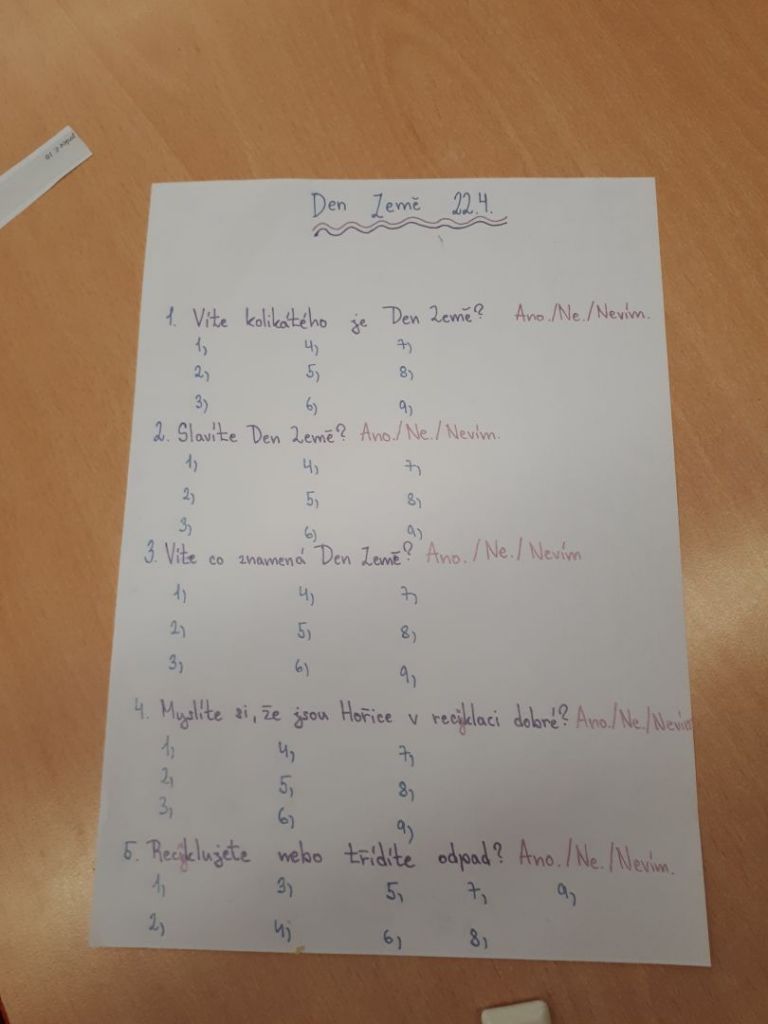 Den Země 22.4.
1. Víte kolikátého je Den Země? Ano./Ne./Nevím.
1, 4, 7,
2, 5, 8,
3, 6, 9,
2. Slavíte Den Země? Ano./Ne./Nevím.
1, 4, 7,
2, 5, 8,
3, 6, 9,
3. Víte co znamená Den Země? Ano./Ne./Nevím
1, 4, 7,
2, 5, 8,
3, 6, 9,
4. Myslíte si, že jsou Hořice v reciklaci dobré? Ano./Ne./Nevím
1, 4, 7,
2, 5, 8,
3, 6, 9,
5. nebo třídíte odpad? Ano./Ne./Nevím.
1, 3, 5, 7, 9,
2, 4, 6, 8,